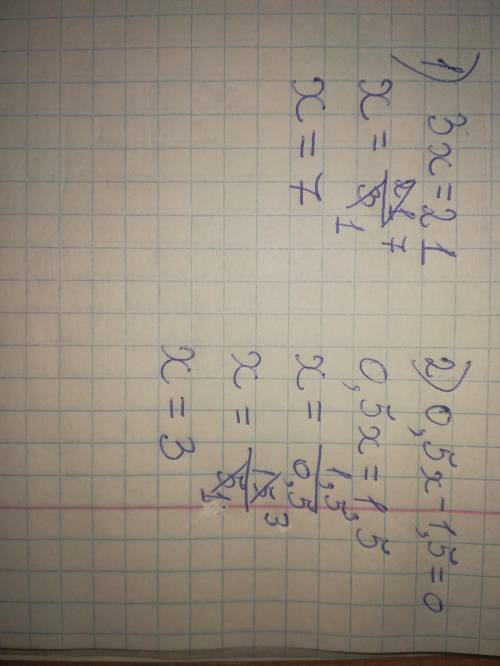 1) 3x = 21
x = 21/3 7 1
x = 7
2) 0,5x - 1,5 = 0
0,5x = 1,5
x = 1,5/0,5
x = 15/5 3 1
x = 3